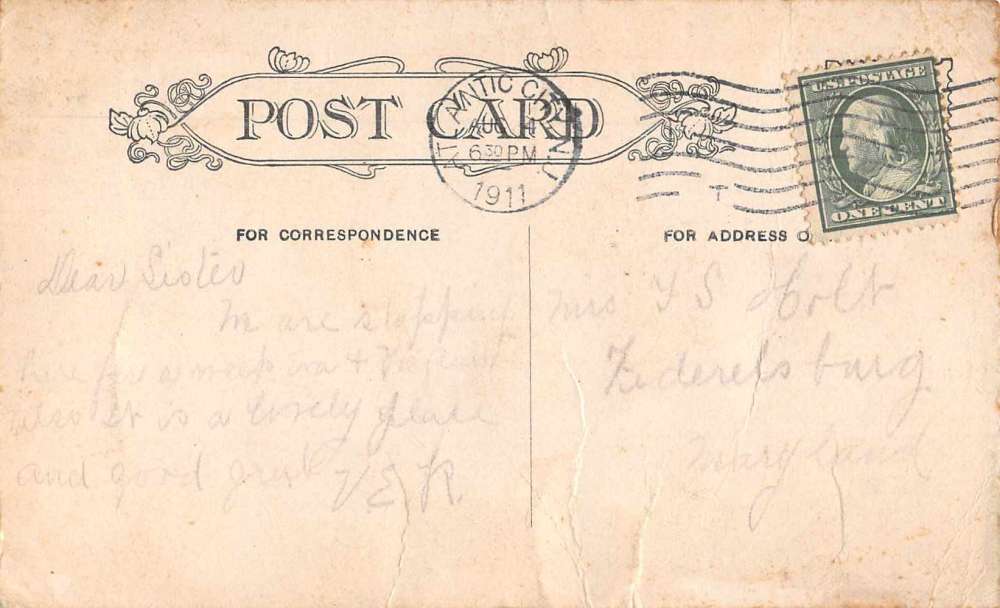 POST CARD
ATLANTIC CITY N.J.
AUG
6 30 PM
1911
T
U.S. POSTAGE
ONE CENT
FOR CORRESPONDENCE
FOR ADDRESS O
Dear Sister
are stopping
here for a week
also it is a lovely place
and good
Mrs S Holt
Federelsburg
Maryland